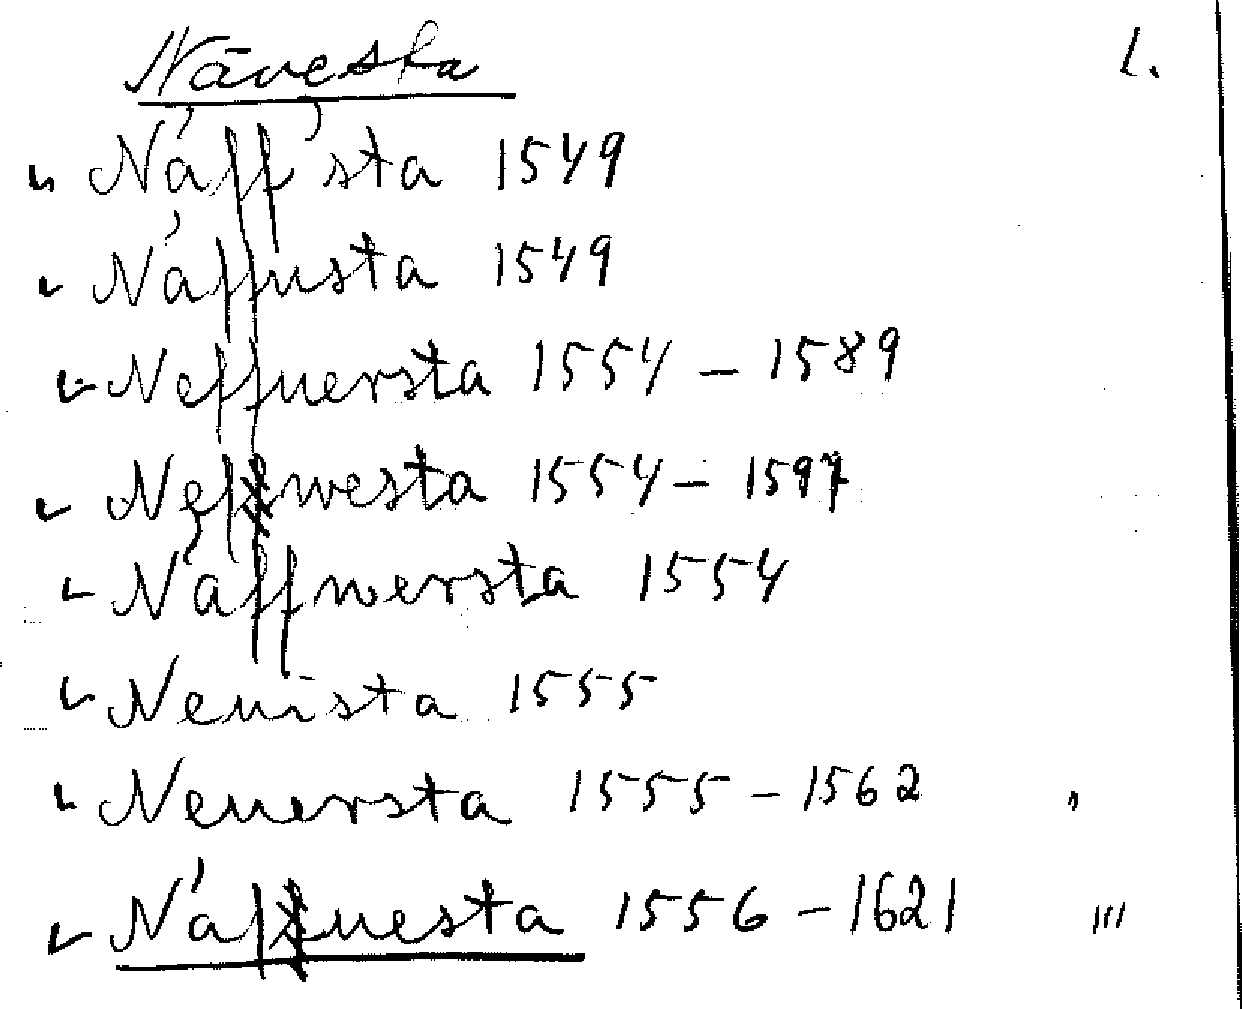 Nāvesta 1.
Náff'sta 1549
Náffusta 1549
Neffuersta 1554 – 1589
Neffwesta 1554 – 1597
Náffwersta 1554
Neuista 1555
Neuersta 1555 – 1562 '
Náffuesta 1556 – 1621 '''